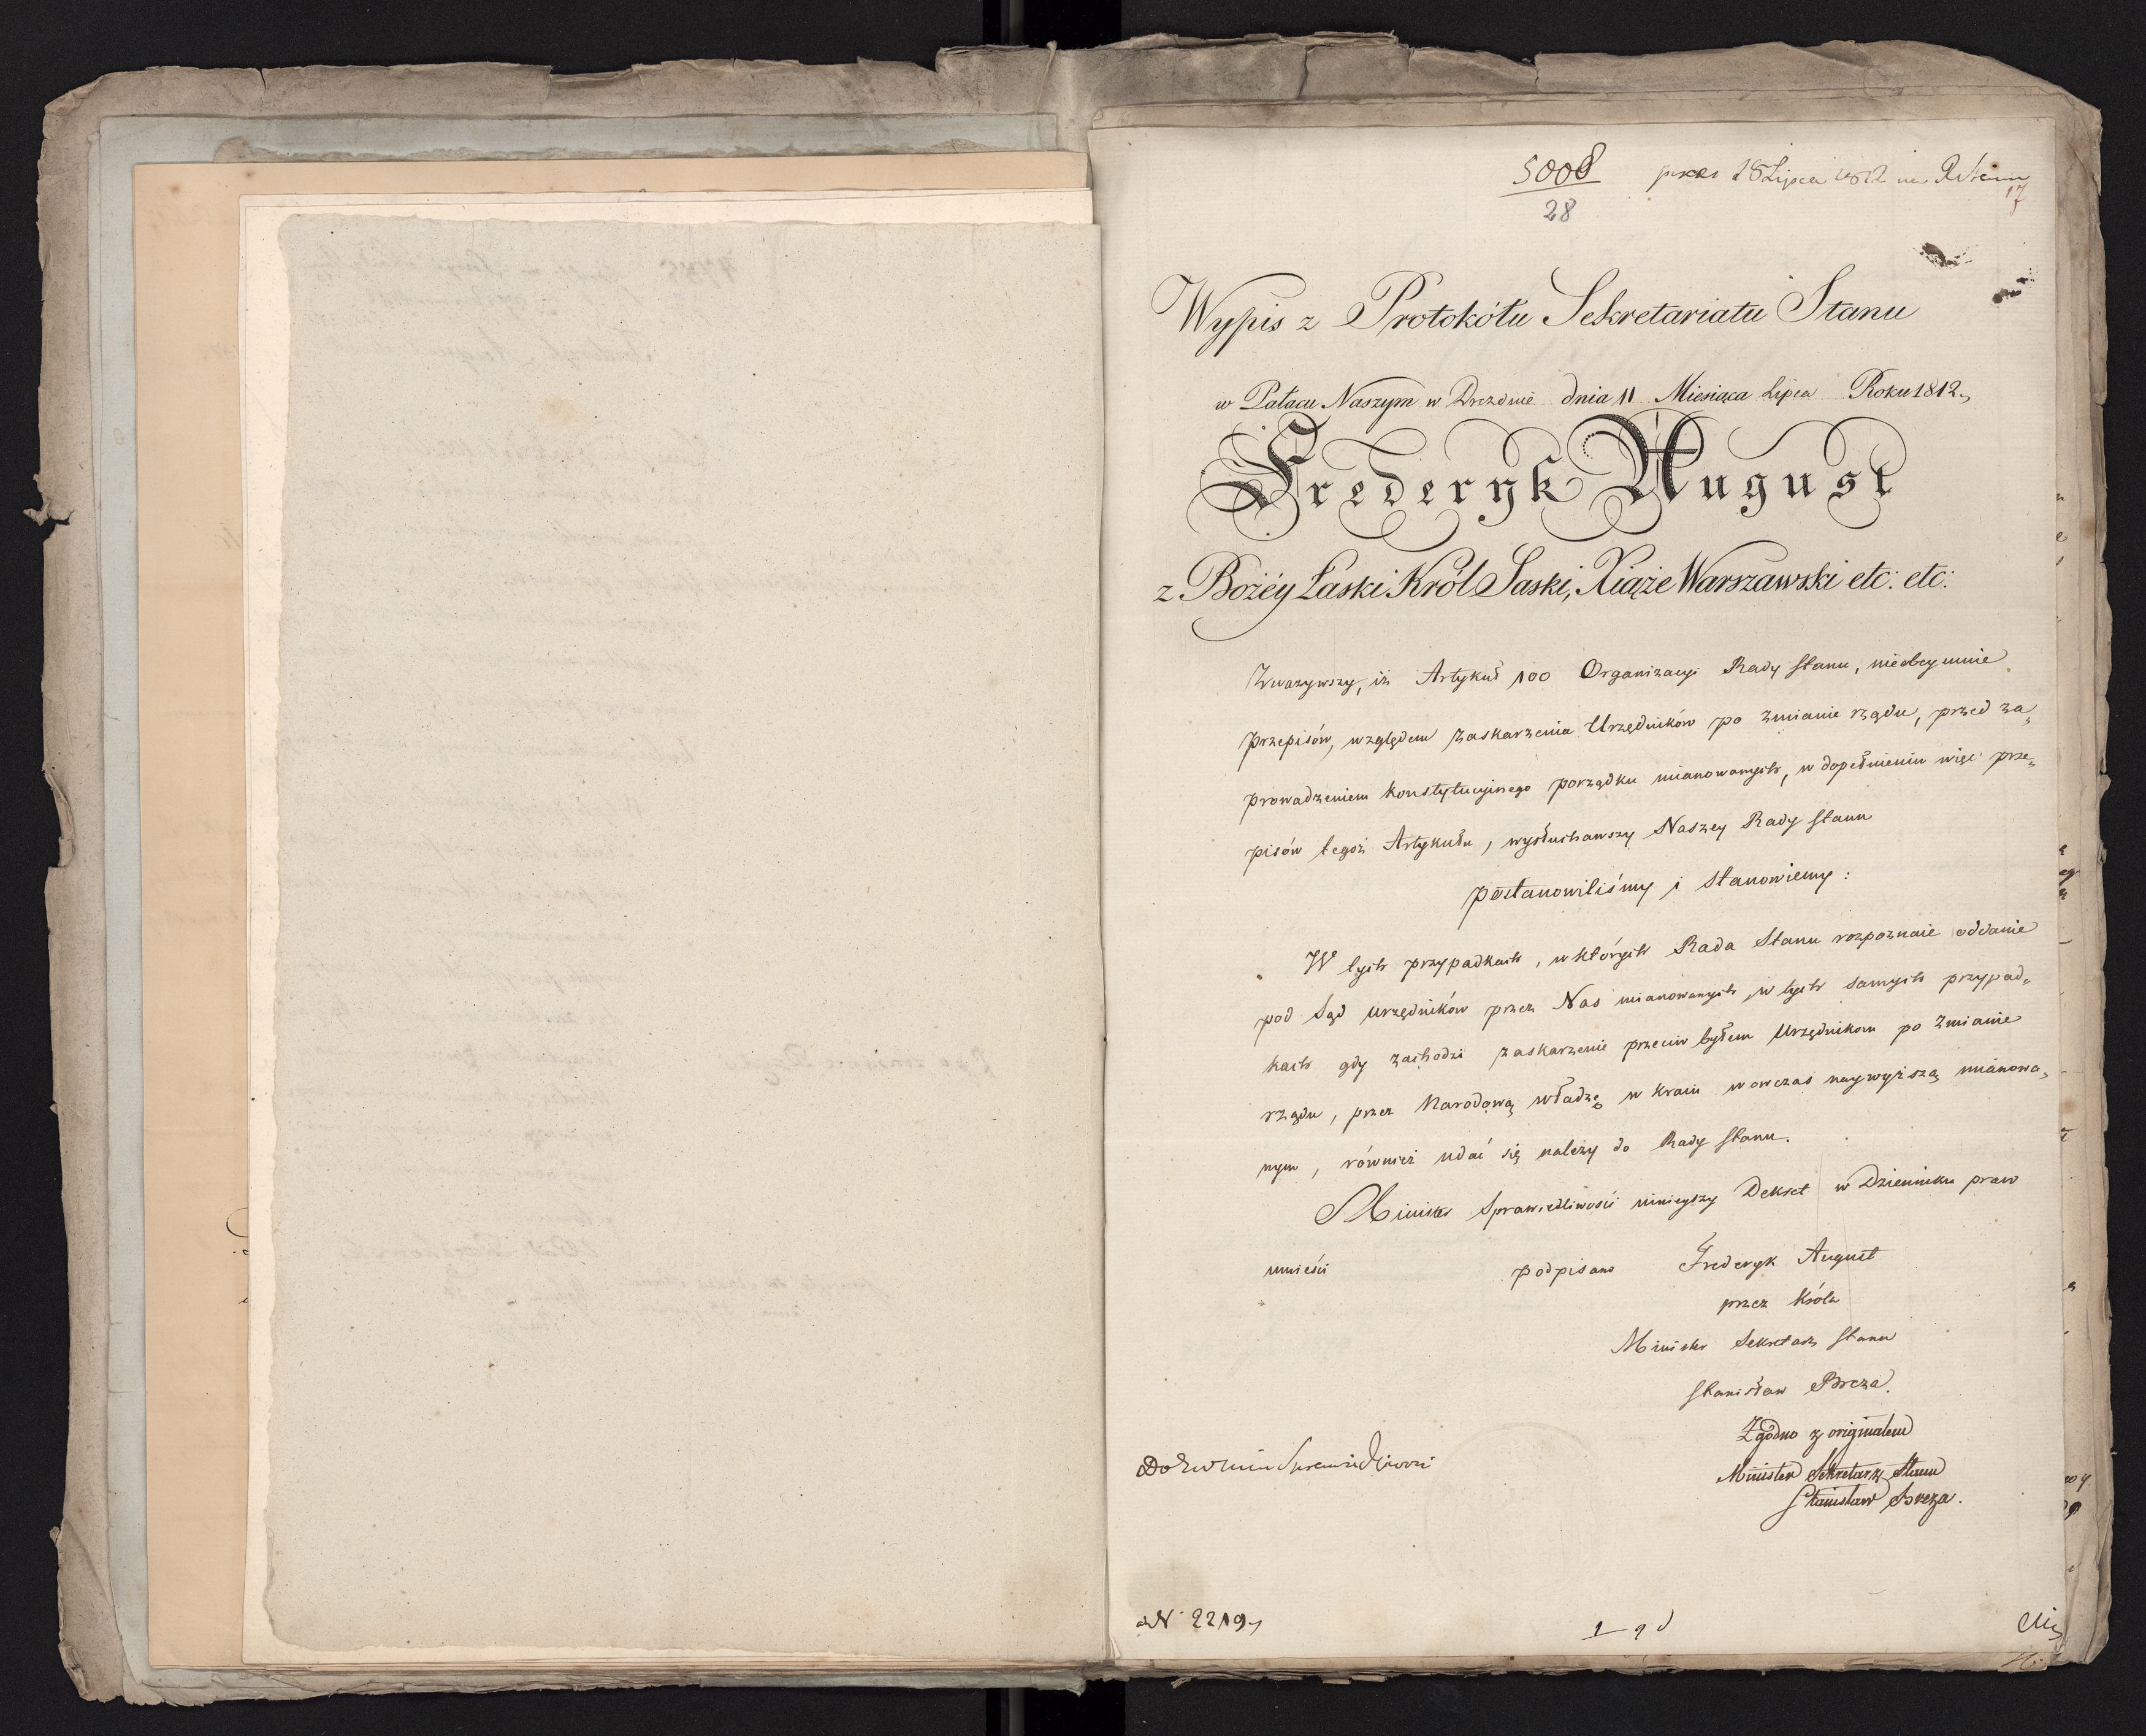 5008
28
17
Wypis z Protokółu Sekretariatu Stanu
w Pałacu Naszym w Dreznie dnia 11 Miesiąca Lipca Roku 1812.
Frederyk August
z Bożéy Łaski Król Saski, Xiąże Warszawski etc: etc:
Zważywszy, iż Artykuł 100 Organizacyi Rady Stanu, nieobeymuie
przepisów, względem zaskarżenia Urzędników po zmianie rządu, przed za„
prowadzeniem konstytucyinego porządku mianowanych, w dopełnieniu więc prze„
pisów tegoż Artykułu, wysłuchawszy Naszey Rady Stanu
postanowiliśmy i stanowiemy:
W tych przypadkach, w których Rada Stanu rozpoznaie oddanie
pod Sąd Urzędników przez Nas mianowanych, w tych samych przypad„
kach gdy zachodzi zaskarżenie przeciw byłem Urzędnikom po zmianie
rządu, przez Narodową władzę w kraiu wowczas naywyższą mianowa„
nym, również udać się należy do Rady Stanu.
Minister Sprawiedliwości ninieyszy Dekret w Dzienniku praw
umieści podpisano Frederyk August
przez Króla
Minister Sekretarz Stanu
Stanisław Breza.
Zgodno z originałem
Minister Sekretarz Stanu
Stanisław Breza.
Sprawiedliwości
N 2219